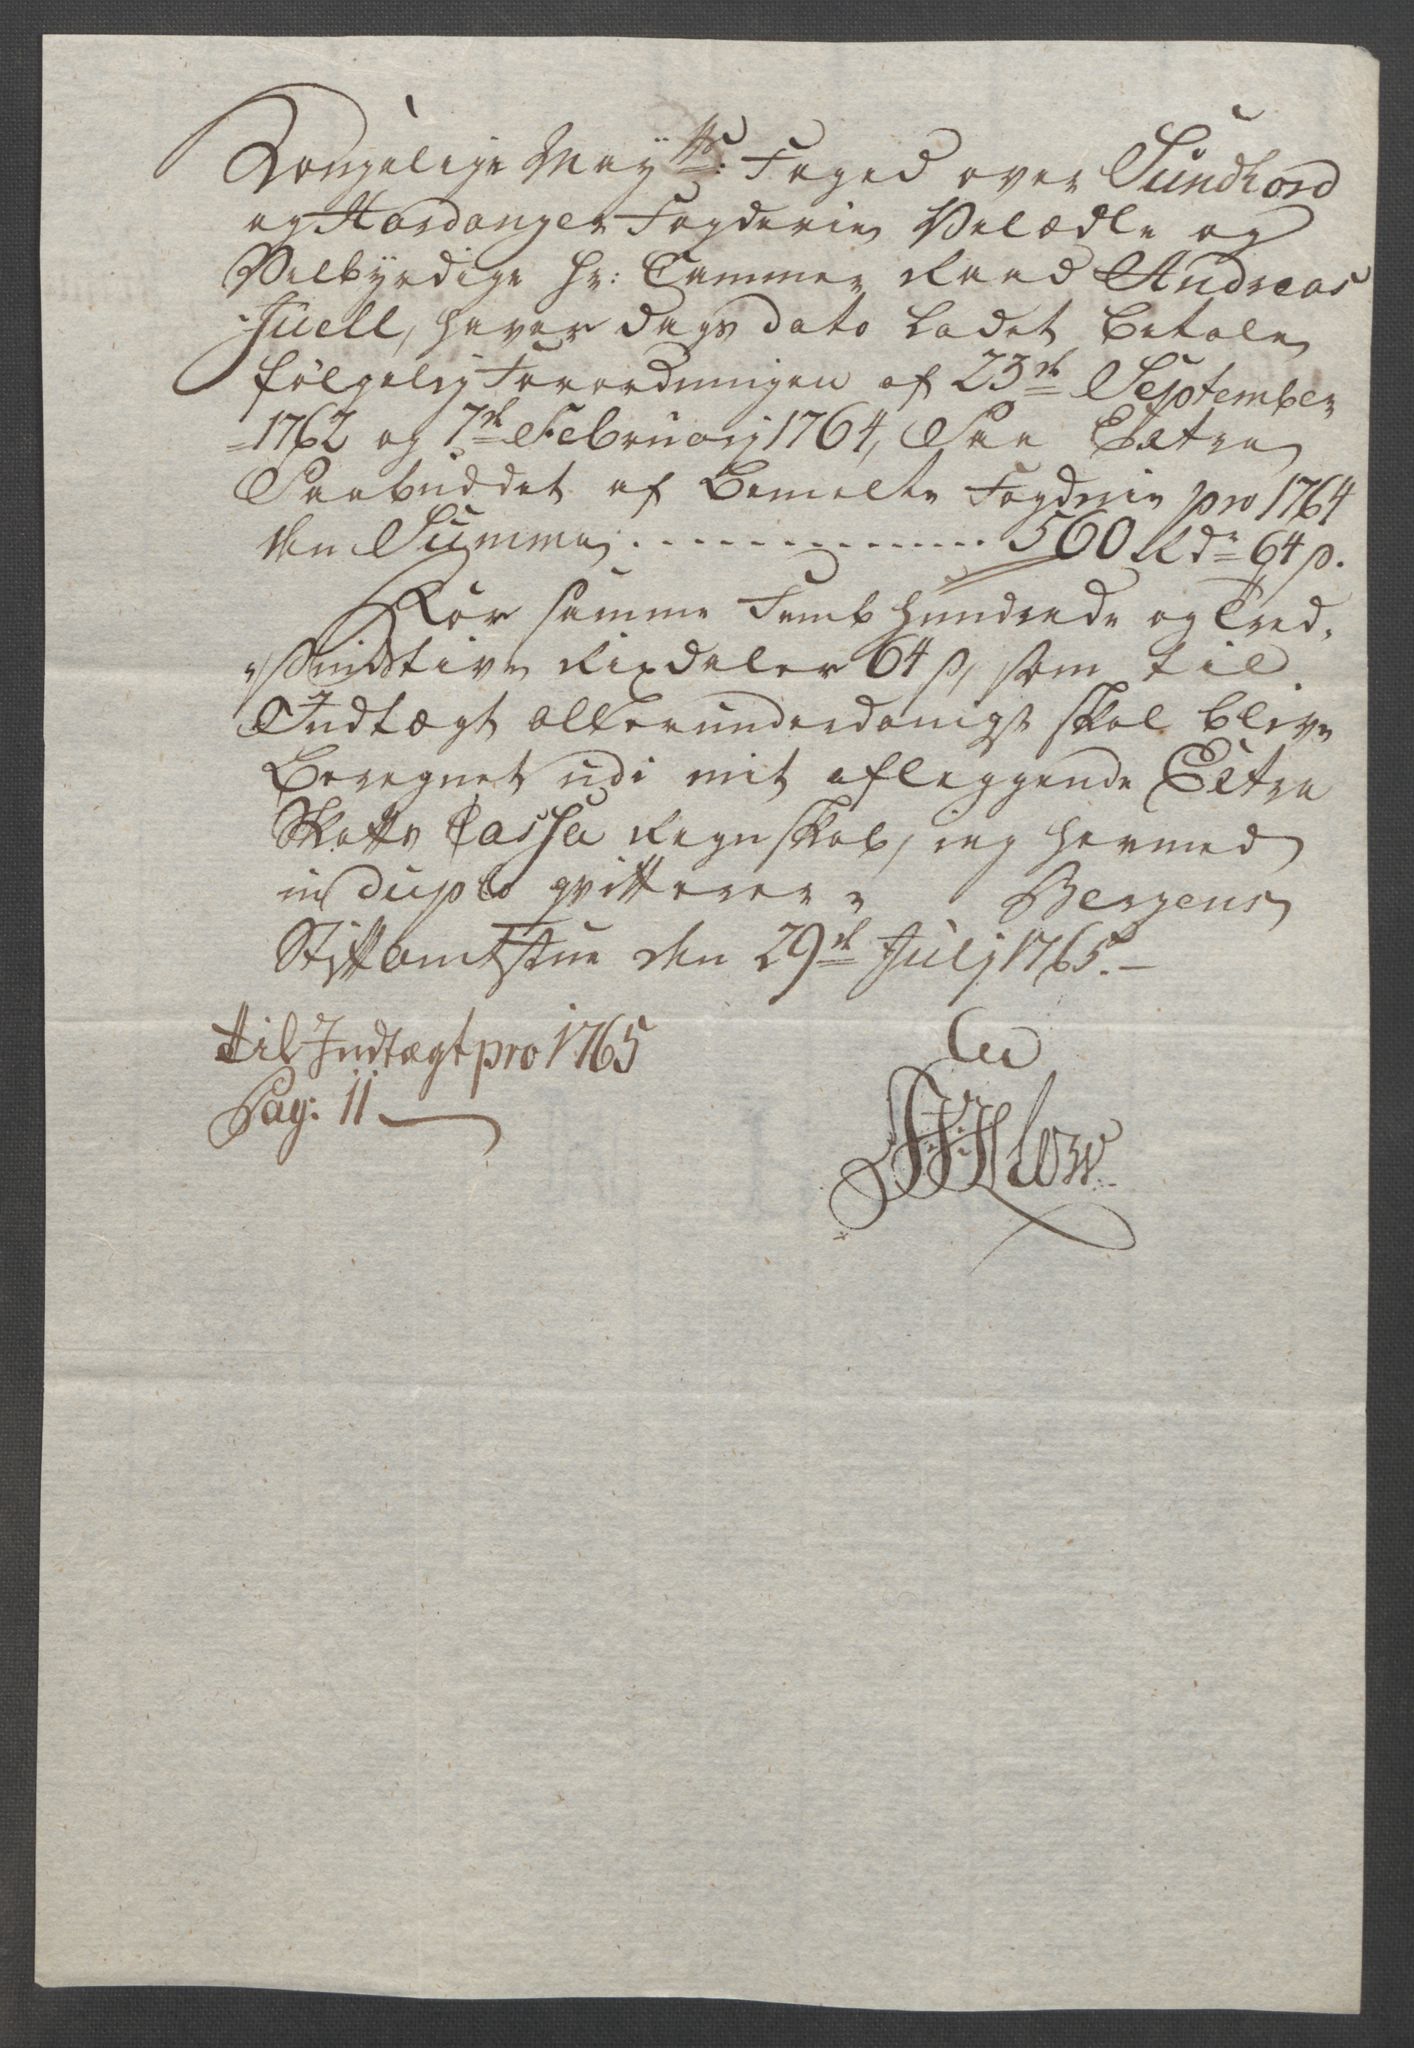 Kongelige May.tts Foged over Sundhord
og Hardanger Fogderie Velædle og
Velbÿrdige Hr: Cammer Raad Andreas
Juell, haver dags dato ladet betale
følgelig Forordningen af 23de September
1762 og 7de Februarij 1764, Paa Extra
Paabuddet af bemelte Fogderie pro 1764
den Summa . . . . . . . . . . . . . . 560 Rdr 64 ß.
For samme Femb hundrede og Tred-
sindstive Rixdaler 64 ß, som til
Indtægt allerunderdanigst skal blive
Beregnet udi mit aflæggende Extra
Skatts Cassa Regnskab, ieg hermed
in duplo qvitterer. Bergens
Stiftamtstue den 29de Julij 1765.
til Indtægt pro 1765
Pag: 11
Klow